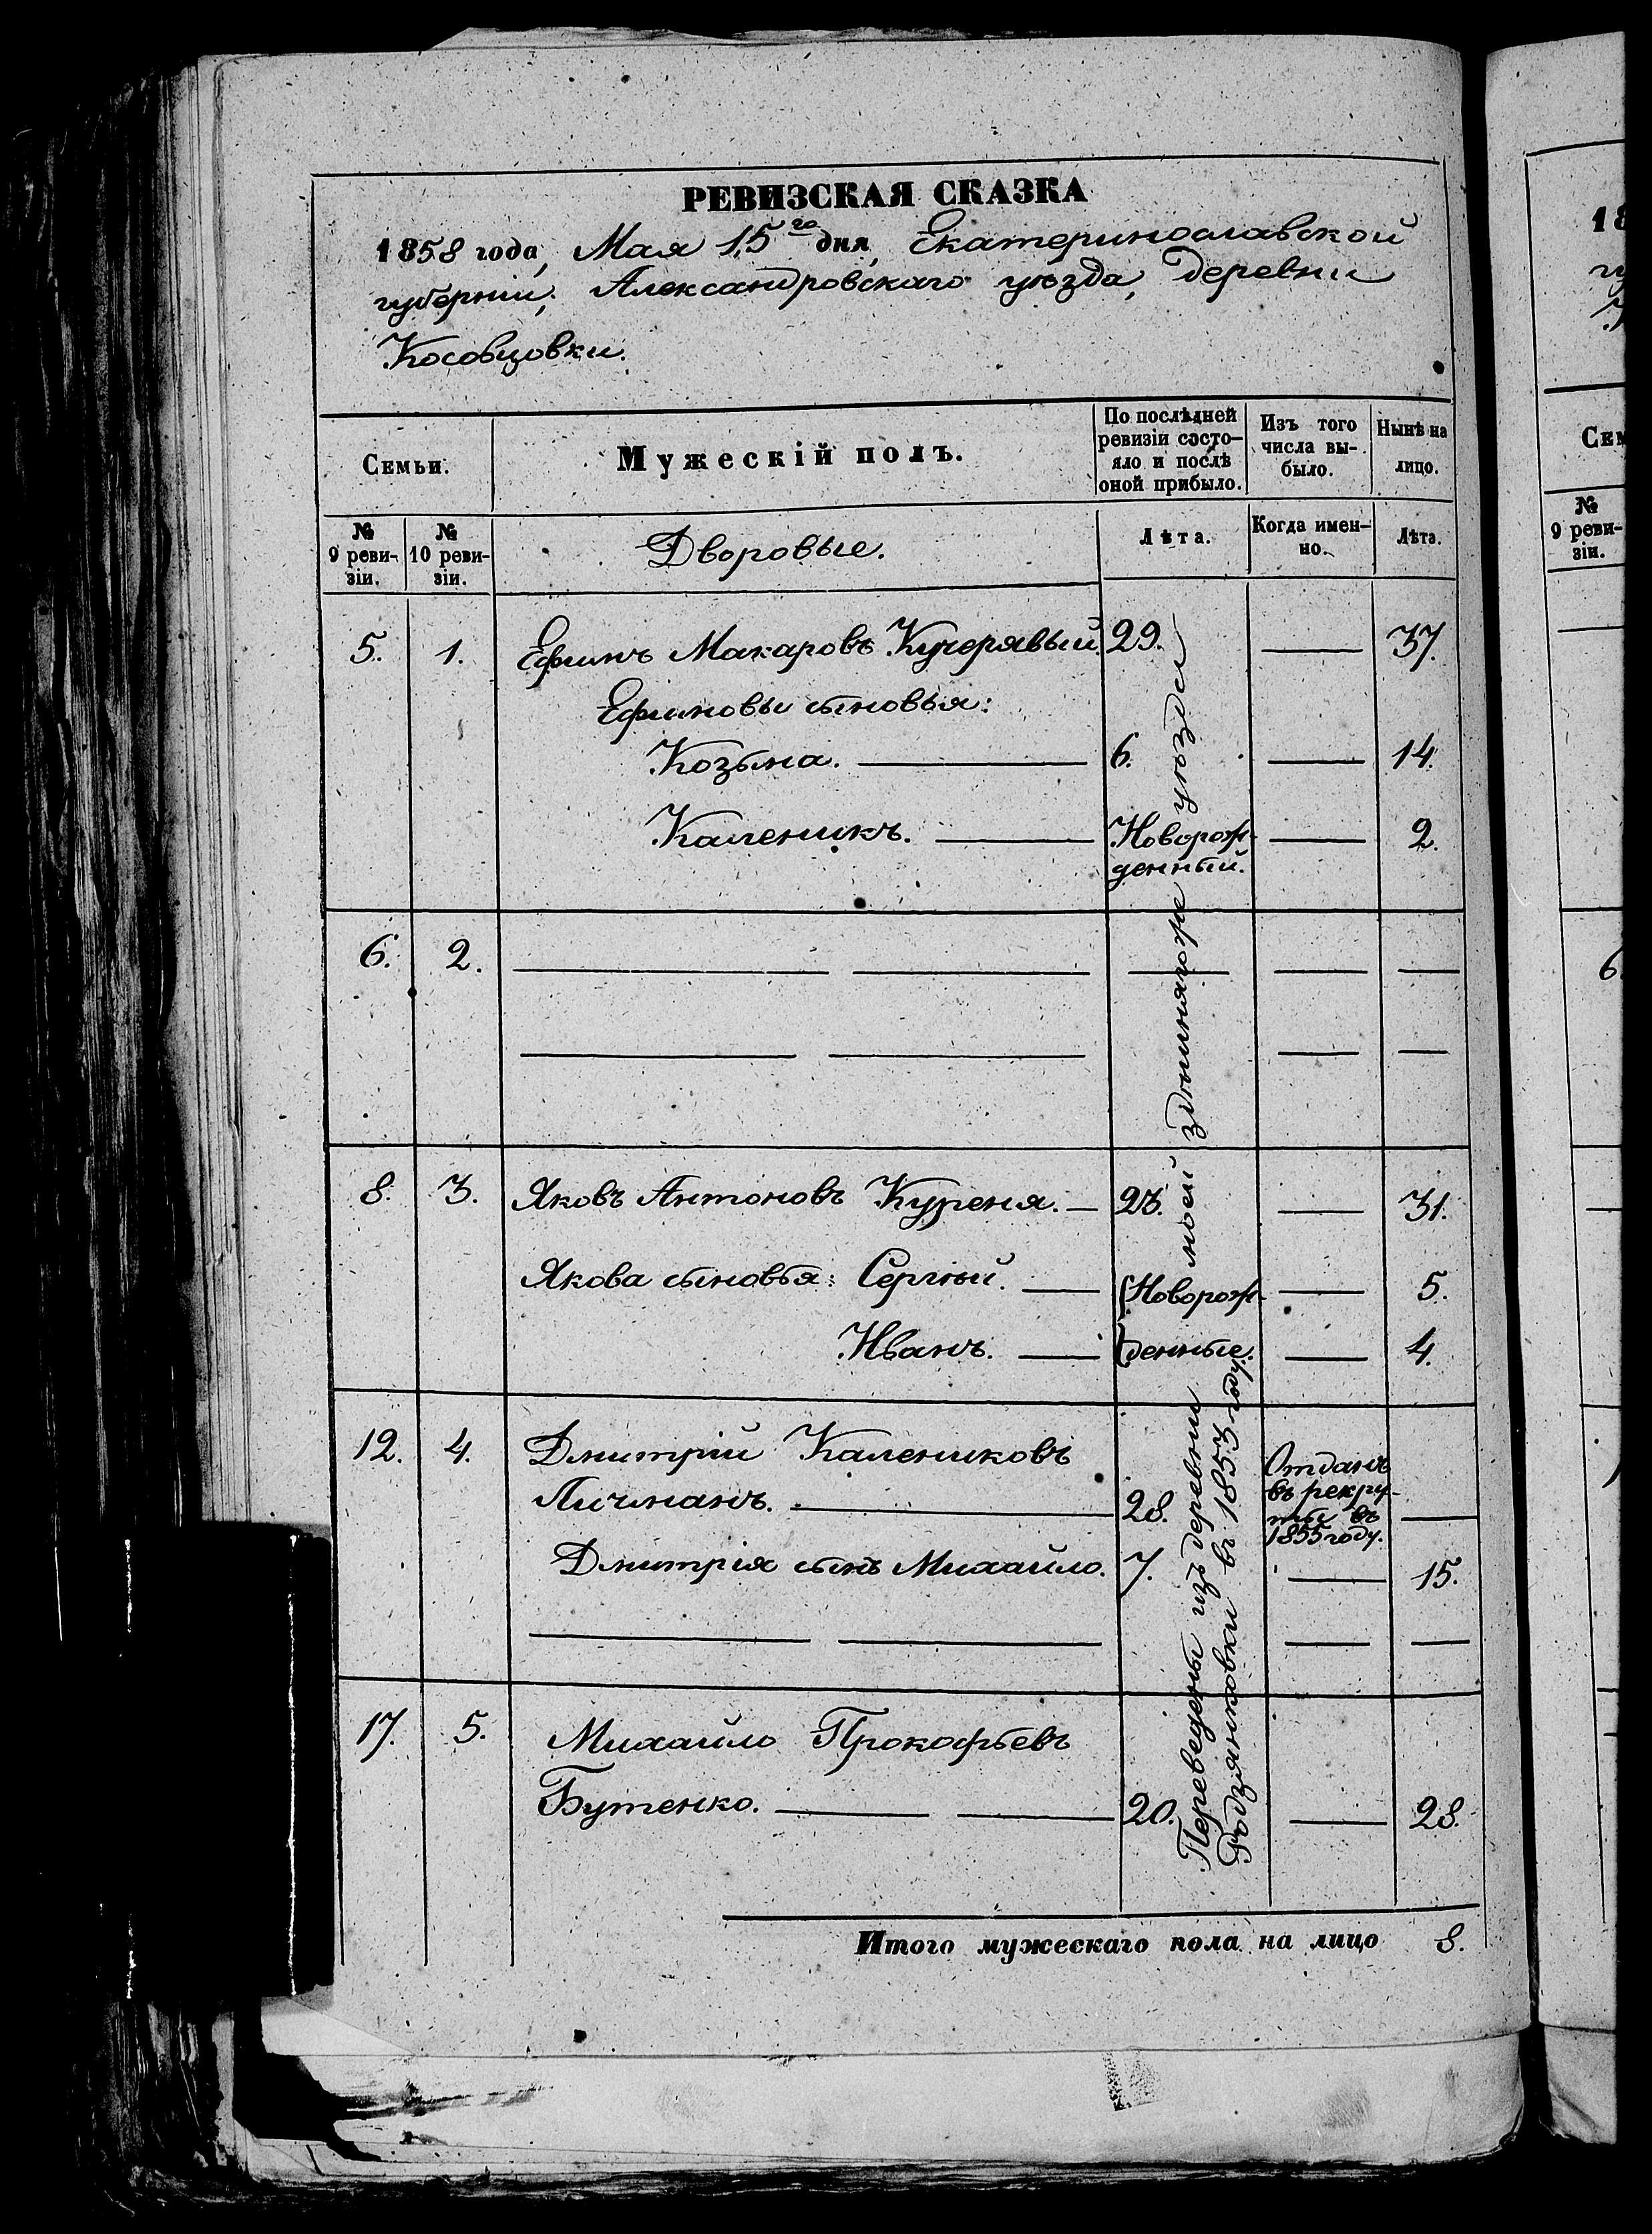 РЕВИЗСКАЯ СКАЗКА
1858 года, Мая 15го дня, Екатеринославской
губерніи, Александровскаго уѣзда, деревни
Косовцовки.
Семьи.
Мужескій полъ.
По послѣдней
ревизіи состо-
яло и послѣ
оной прибыло.
Изъ того
числа вы-
было.
Нынѣ на
лицо.
№
9 реви-
зіи.
№
10 реви-
зіи.
Дворовые.
Лѣта.
Когда имен-
но.
Лѣта.
5. 1. Ефимъ Макаровъ Кучерявый. 29. 37.
Ефимовы сыновья:
Козьма. 6. 14.
Каленикъ. Новорож- 2.
денный.
6. 2.
8. 3. Яковъ Антоновъ Куреня. 23. 31.
Якова сыновья: Сергѣй. Новорож- 5.
Иванъ. денные. 4.
12. 4. Дмитрій Калениковъ
Личманъ. 28.
Отданъ
въ рекру-
ты въ
1855 году.
Дмитрія сынъ Михайло. 7. 15.
17. 5. Михайло Прокофьевъ
Бутенко. 20. 28.
Переведены изъ деревни моей здѣшнягоже уѣзда
Родзянковки въ 1853 году.
Итого мужескаго пола на лицо 8.
18
Сем
№
9 реви-
зіи.
6.